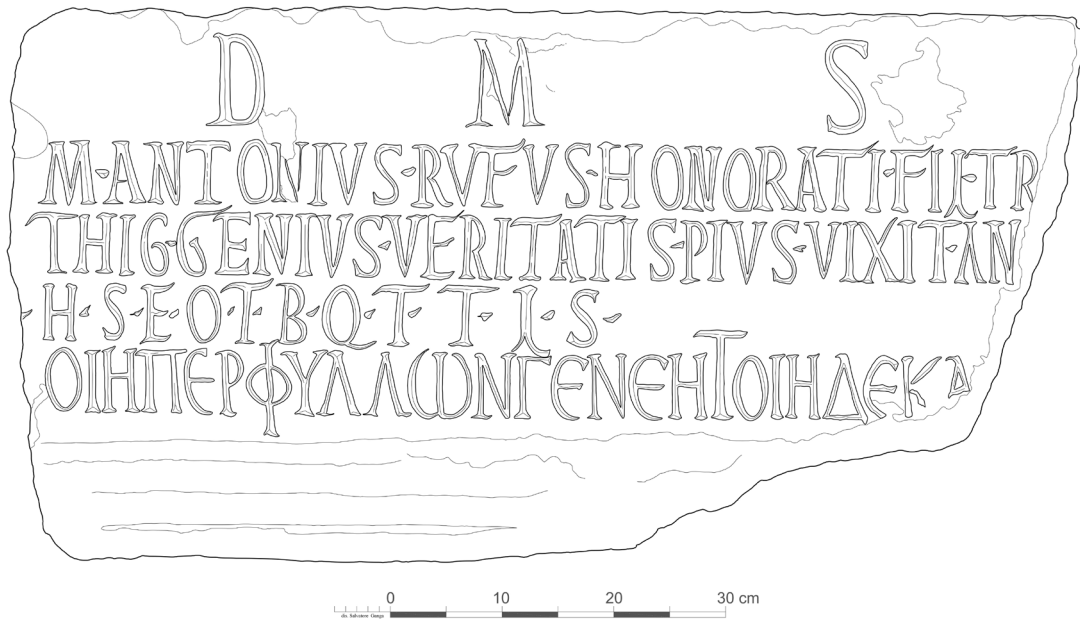 D M S
M·ANTONIVS·RVFVS·HONORATI·FIL·TR
THIG·GENIVS·VERITATIS·PIVS·VIXIT·AN
·H·S·E·O·T·B·Q·T·T·L·S·
ΟΙΗΠΕΡΦΥΛΛωΝΓΕΝΕΗΤΟΙΗΔΕΚΑ
0 10 20 30 cm
dis. Salvatore Ganga